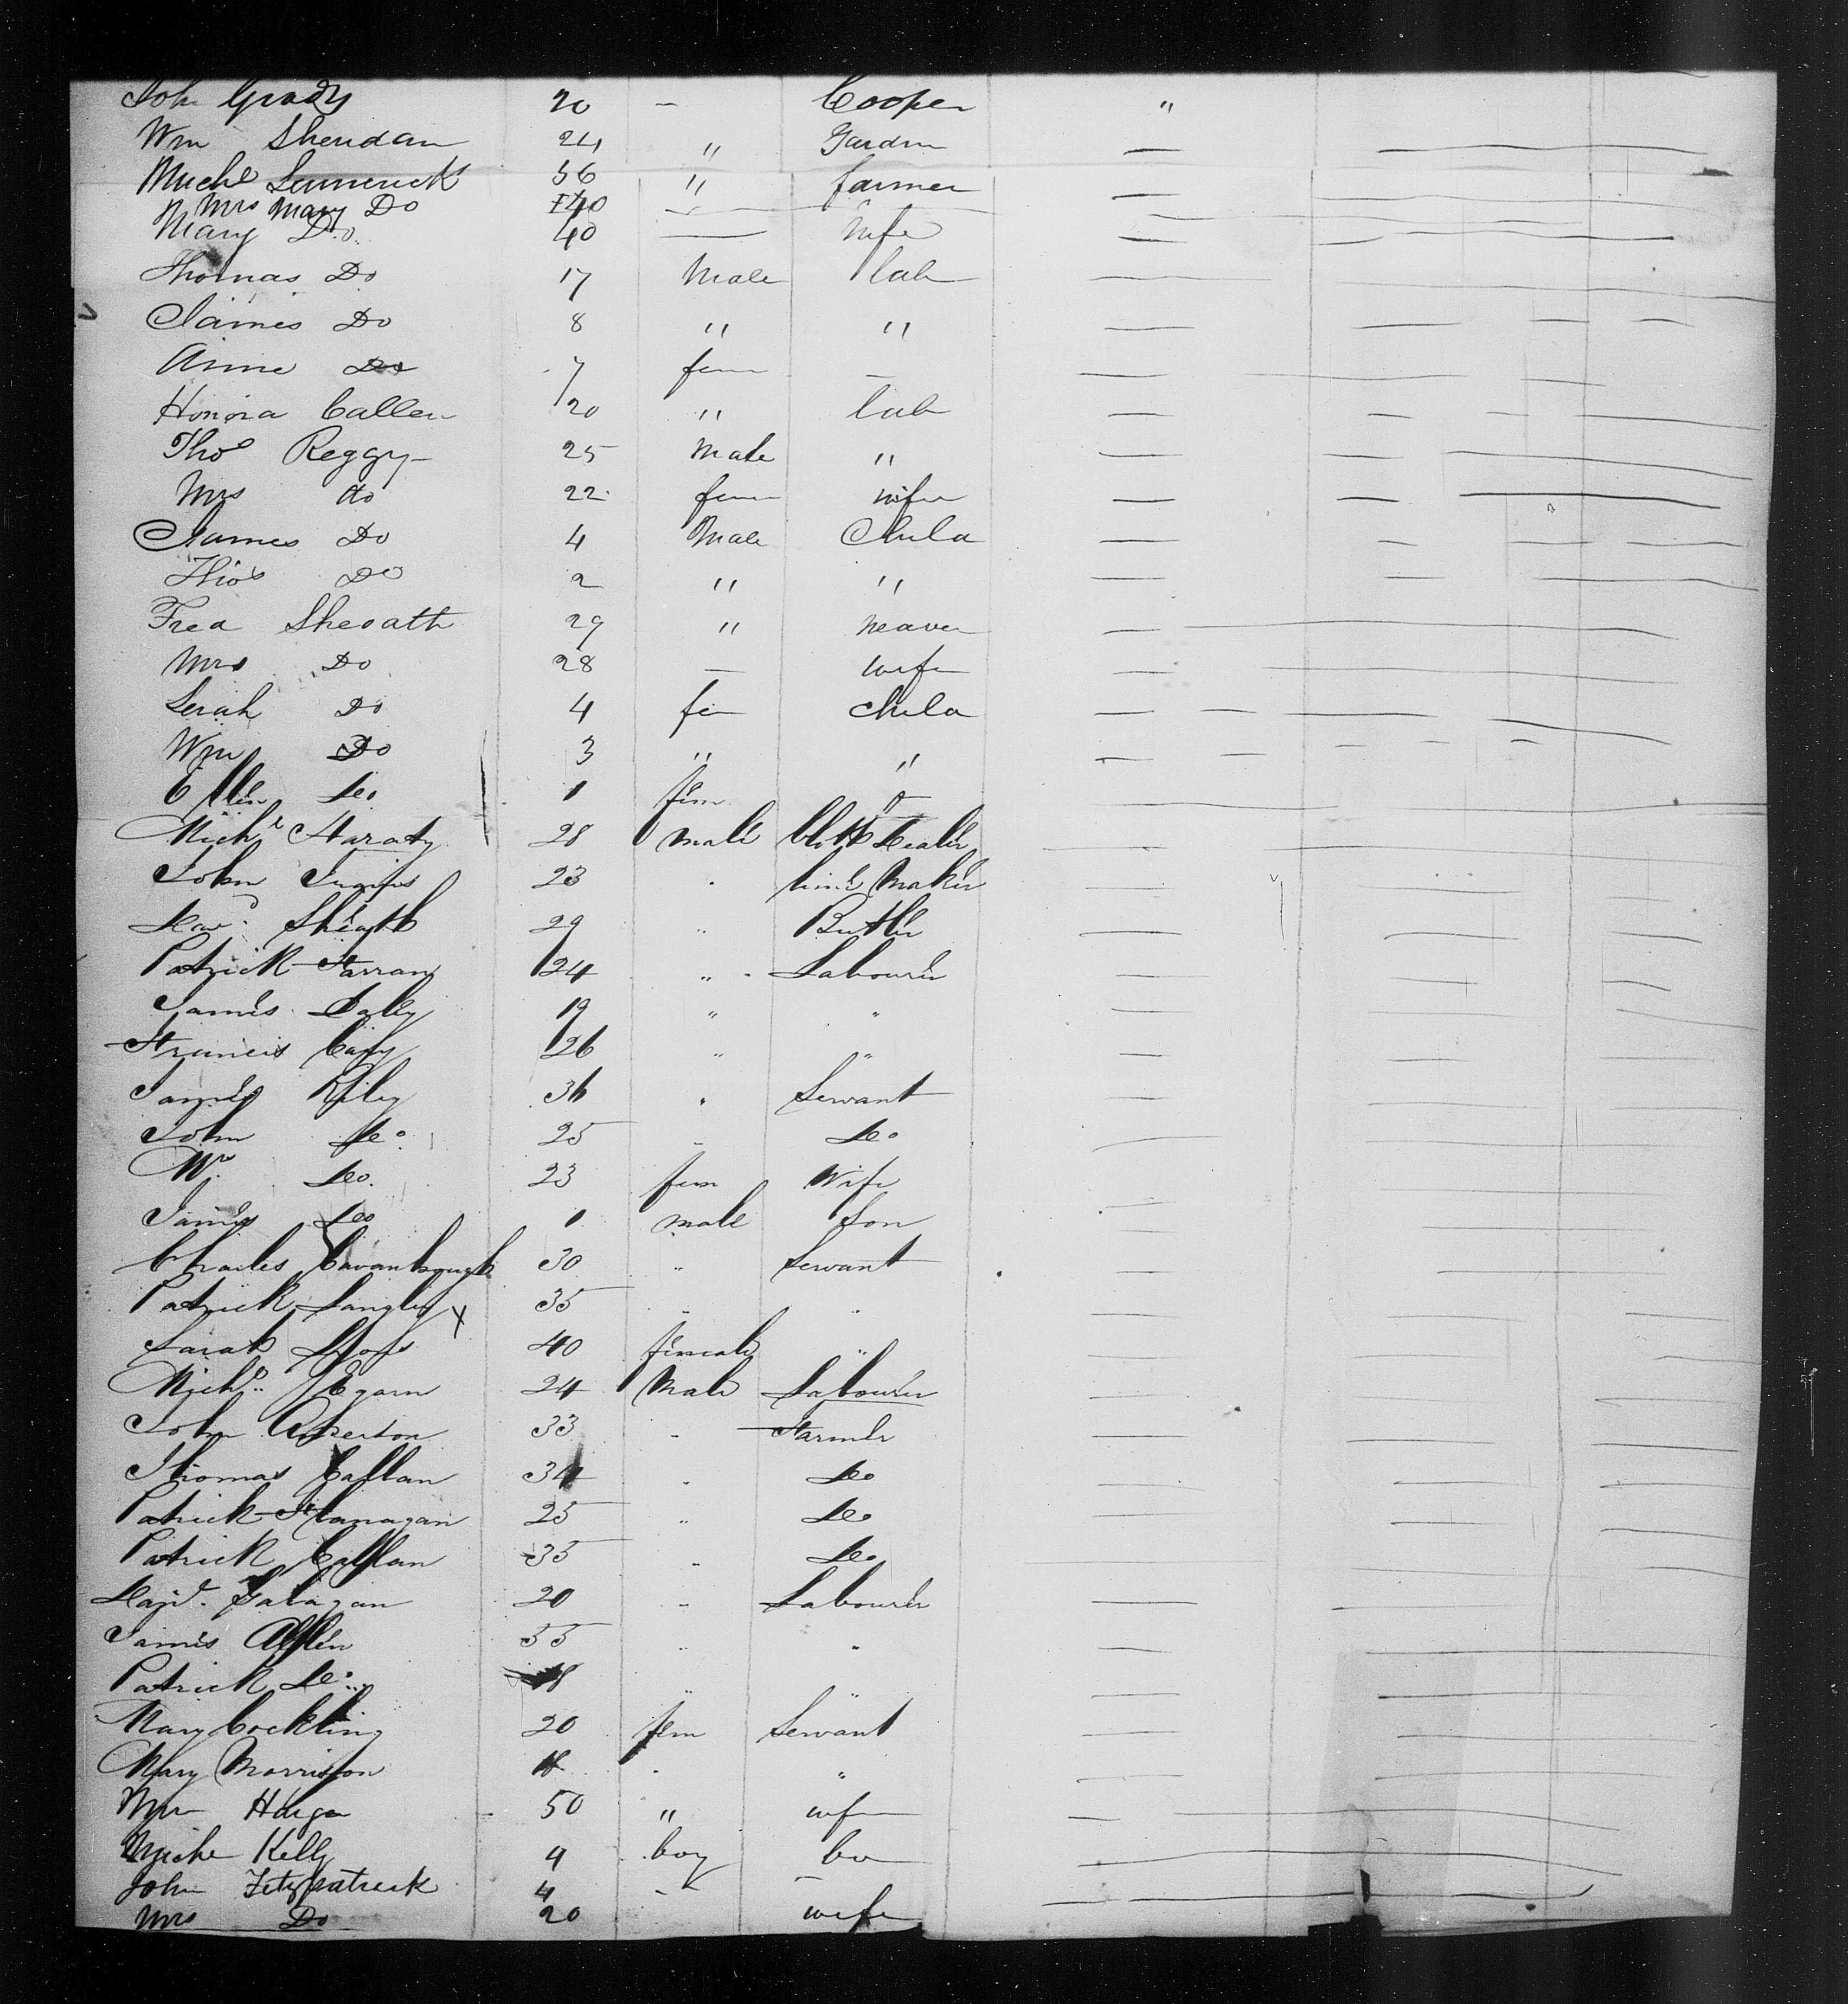 John Grady 20 - Cooper "
Wm Sheridan 24 " Gardn
Michl Limerick 56 " farmer
Mrs Mary Do 40
Mary Do 40 — Wife
Thomas Do 17 Male lab
James Do 8 " "
Anne Do 7 fem —
Honora Callen 20 " lab
Thos Reggy 25 Male "
Mrs do 22 fem wife
James Do 4 Male Child
Thos Do 2 " "
Fred Sheoath 29 " Weaver
Mrs Do 28 — wife
Serah Do 4 fe Child
Wm Do 3 " "
Ellen Do 1 fem "
Michl Haraty 28 male Cloth Dealer
John 23 " Maker
Edwd Sheath 29 " Butler
Patrick Farran 24 " Labourer
James Daley 19 " "
Francis Casy 26 " "
James Riley 36 " Servant
John Do 25 " Do
Mrs Do 23 fem Wife
James Do 1 male Son
Charles Cavanhough 30 " Servant
Patrick Langley X 35 " "
Sarah 40 female "
Michl Egarn 24 Male Labourer
John 33 " Farmer
Thomas Callan 34 " Do
Patrick Flanagan 25 " Do
Patrick Callan 35 " Do
Galagan 20 " Labourer
James Allen 55 " "
Patrick Do 18 " "
Mary Cockling 20 fem Servant
Mary Morrison 18 " "
Mrs 50 " wife
Miche Kelly 9 boy bo
John Fitzpatrick 4 - —
Mrs Do 20 wife